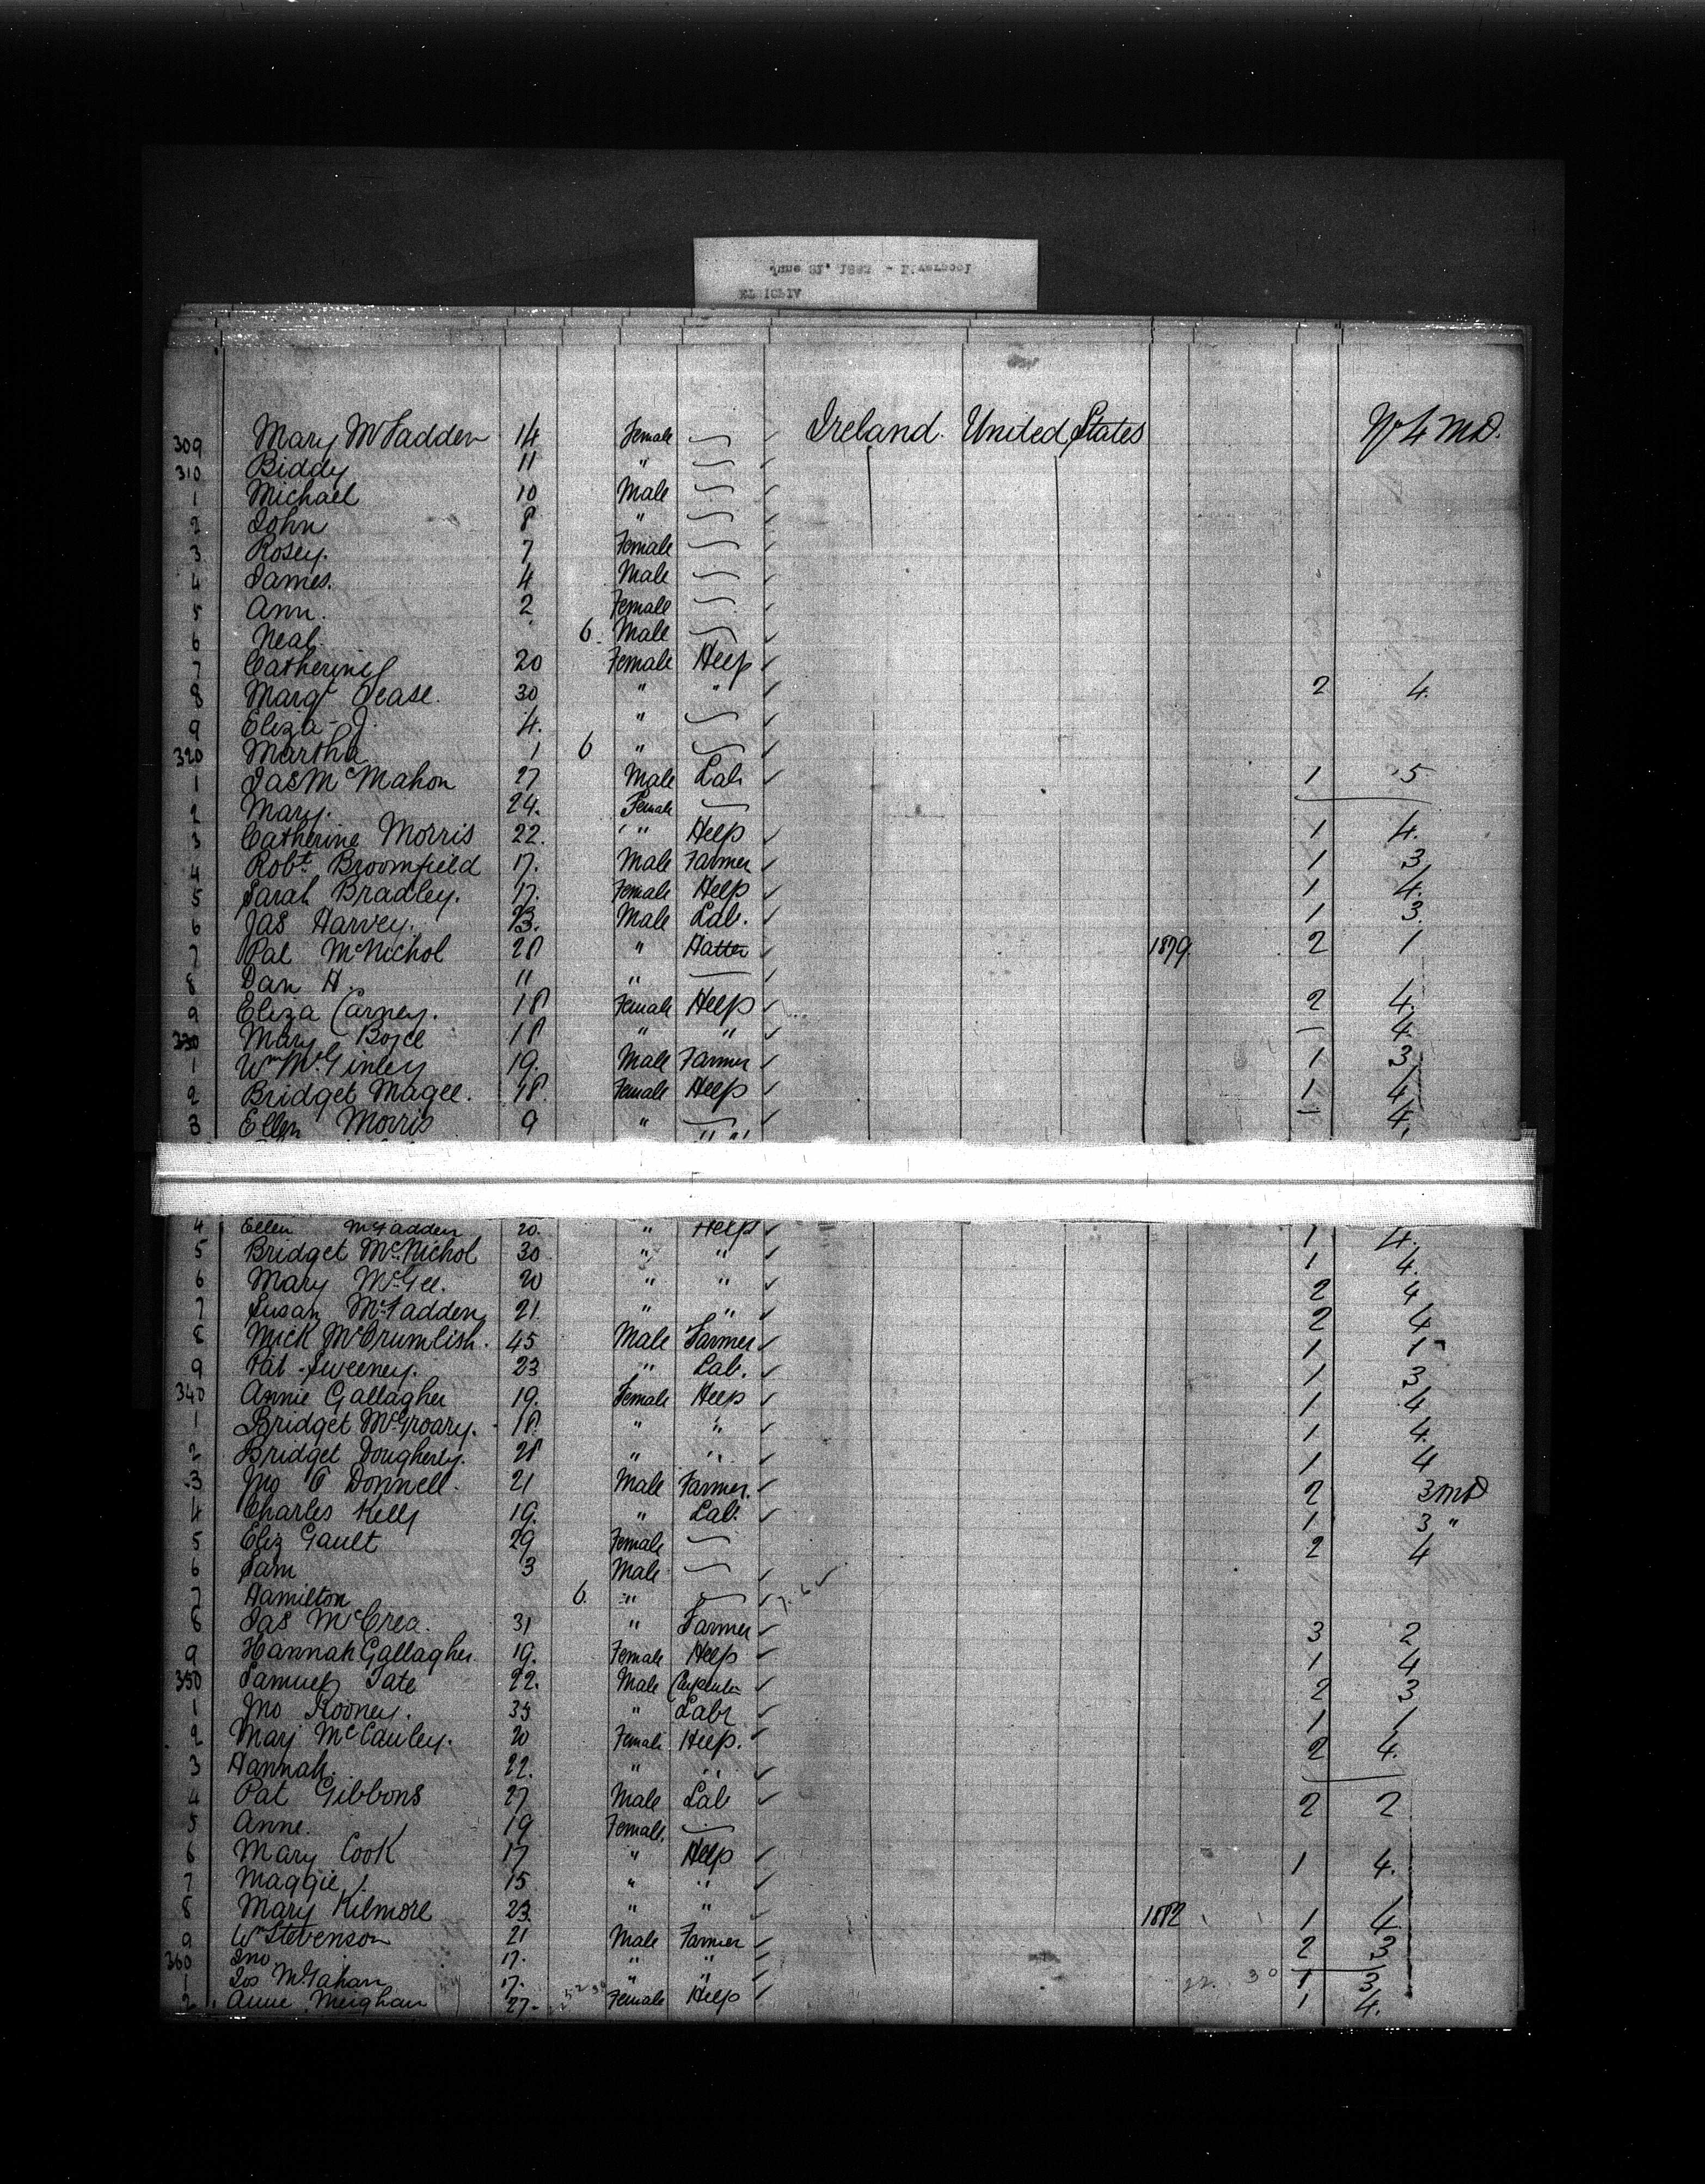 309 Mary McFadden 14 Female Ireland. United States No 4 MD.
310 Biddy 11 "
1 Michael 10 Male
2 John 8 "
3 Rosey. 7 Female
4 James. 4 Male
5 Ann. 2 Female
6 Neal. 6. Male
7 Catherine 20 Female Help
8 Margt Dease. 30 " " 2 4.
9 Eliza J. 4. "
320 Martha 1 6 "
1 Jas McMahon 27 Male Lab 1 5
2 Mary. 24. Female
3 Catherine Morris 22. " Help 1 4.
4 Robt. Broomfield 17. Male Farmer 1 3
5 Sarah Bradley. 17. Female Help 1 4.
6 Jas Harvey. 23. Male Lab. 1 3.
7 Pat McNichol 28 " Hatter 1879. 2 1
8 Dan H. 11 "
9 Eliza Carney. 18 Female Help 2 4.
330 Mary Boyce 18 " " – 4.
1 Wm McGinley 19. Male Farmer 1 3
2 Bridget Magee. 18. Female Help 1 4
3 Ellen Morris 9 " – 4.
4 Ellen McFadden 20. " Help 1 4.
5 Bridget McNichol 30 " " 1 4.
6 Mary McGee. 20 " " 2 4
7 Susan McFadden 21. " " 2 4
8 Mick McCrumlish. 45 Male Farmer 1 1
9 Pat Sweeney. 23 " Lab. 1 3
340 Annie Gallagher 19. Female Help 1 4
1 Bridget McGroary. 18. " " 1 4.
2 Bridget Dougherty. 28 " " 1 4
3 Jno O Donnell. 21 Male Farmer. 2 3 MD
4 Charles Kelly 19. " Lab. 1 3 "
5 Eliz Gault 29 Female 2 4
6 Sam 3 Male
7 Hamilton 6. "
8 Jas McCrea. 31 " Farmer 3 2
9 Hannah Gallagher 19. Female Help 1 4
350 Samuel Tate 22. Male Carpenter 2 3
1 Jno Rooney. 35 " Labr 1 1
2 Mary McCauley. 20 Female Help. 2 4.
3 Hannah. 22. " "
4 Pat Gibbons 27 Male Lab 2 2
5 Anne. 19 Female.
6 Mary Cook 17 " Help 1 4.
7 Maggie 15 " "
8 Mary Kilmore 23. " " 1882 1 4
9 Wm Stevenson 21 Male Farmer 2 3
360 Jno 17. " "
1 Jos McGahan 17. " " 1 3
2 Anne Meighan 27. Female Help 1 4.